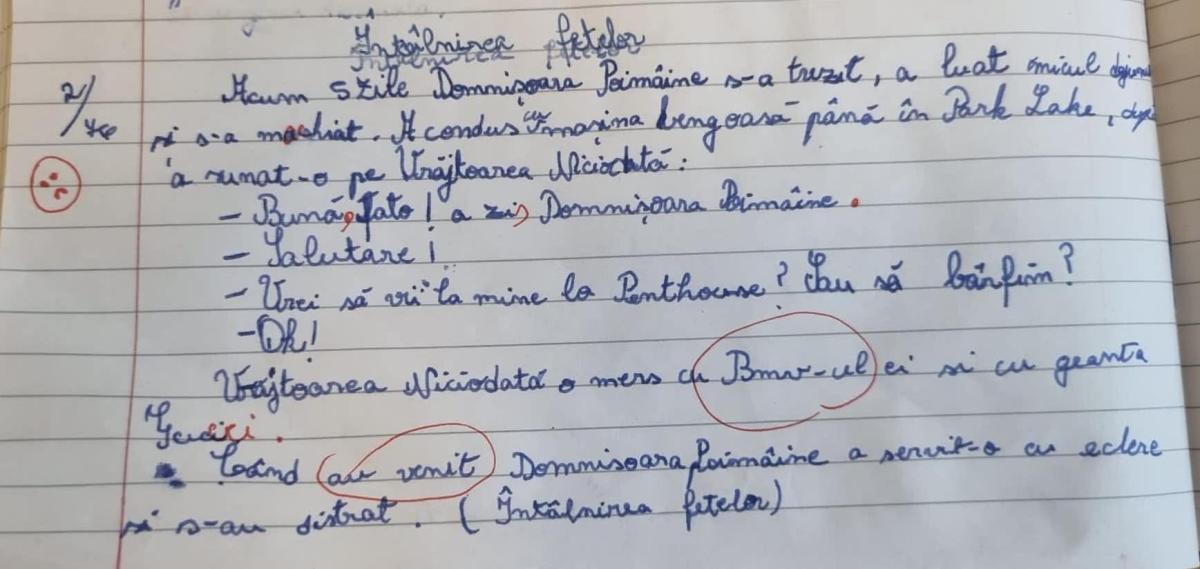 Întâlnirea fetelor
Acum 5 zile Domnișoara Poimâine s-a trezit, a luat micul dejun
și s-a machiat. A condus cu mașina lengoasă până în Park Lake, după
a sunat-o pe Vrăjtoarea Niciodată:
- Bună, fato! a zis Domnișoara Poimâine.
- Salutare!
- Vrei să vii la mine la Penthouse? Sau să bârfim?
- Ok!
Vrăjtoarea Niciodată a mers cu Bmw-ul ei si cu geanta
Gucici.
Când au venit Domnisoara Poimâine a servit-o cu eclere
si s-au distrat. (Întâlnirea fetelor)